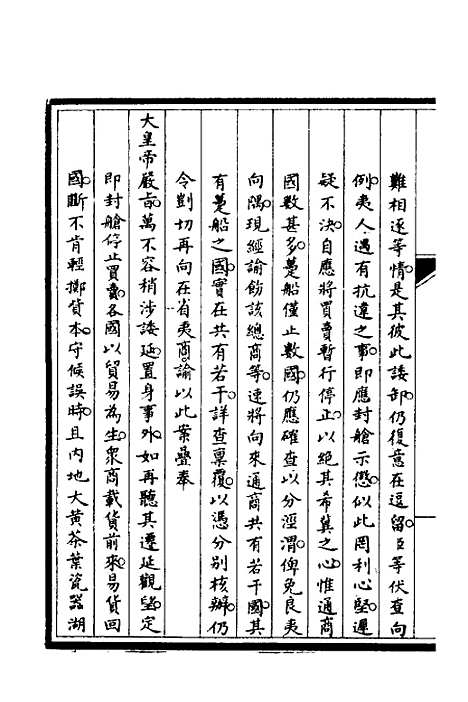 難相逐等情是其彼此諉卸仍復意在逗留臣等伏查向
例夷人遇有抗違之事即應封艙示懲似此罔利心堅遲
疑不決自應將買賣暫行停止以絕其希冀之心惟通商
國數甚多躉船僅止數國仍應確查以分涇渭俾免良夷
向隅現經諭飭該總商等速將向來通商共有若干國其
有躉船之國實在共有若干詳查稟覆以憑分別核辦仍
令剴切再向在省夷商諭以此案疊奉
大皇帝嚴旨萬不容稍涉諉延置身事外如再聽其遷延觀望定
即封艙停止買賣各國以貿易為生眾商載貨前來易貨回
國斷不肯輕擲貨本守候誤時且內地大黃茶葉瓷器湖